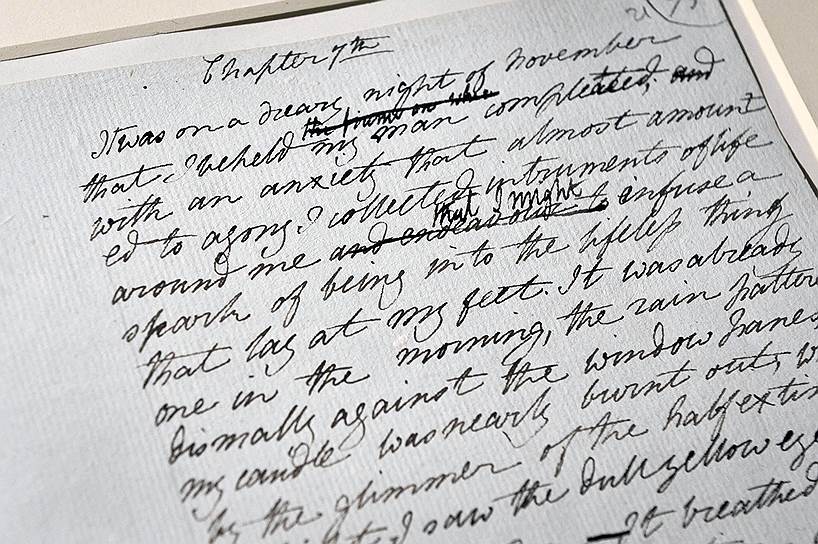 Chapter 7th
It was on a dreary night of November
that I beheld my man compleated; and
with an anxiety that almost amount
ed to agony I collected instruments of life
that I might
around me and endeavour to infuse a
spark of being into the lifeless thing
that lay at my feet. It was already
one in the morning, the rain pattere
dismally against the window panes
my candle was nearly burnt out, w
by the glimmer of the half extin
I saw the dull yellow eye
It breathed